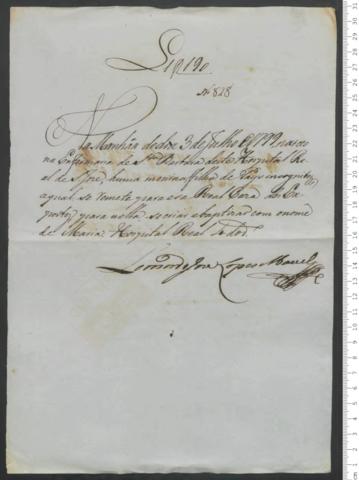 L 9 f 190
Nº 828
Na Manhãa de doze 3 de Julho de 1799 nasceo
na Enfermaria de Sta. deste Hospital Re
al de S. Joze, huma menina filha de Pays incognitos,
a qual se remete para essa Real Caza dos Ex
postos, para nella se criar, e baptizar com o nome
de Maria. Hospital Real
Leonardo Joze Lopes